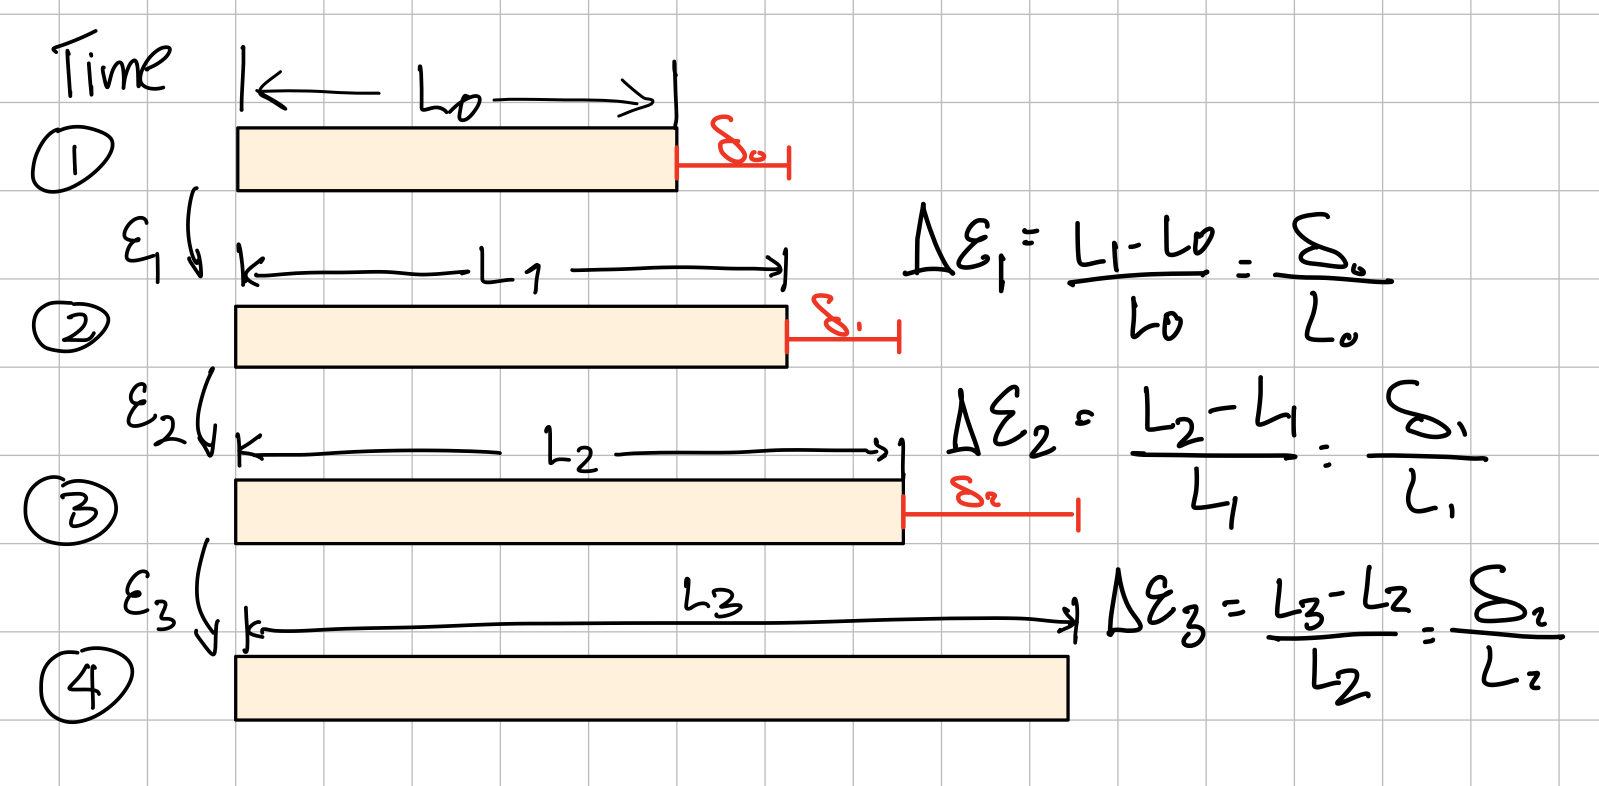 Time
L0
① δ₀
ε1
L1
Δε1 = (L1 - L0)/L0 = δ₀/L₀
② δ₁
ε2
L2
Δε2 = (L2 - L1)/L1 = δ₁/L₁
③ δ₂
ε3
L3
Δε3 = (L3 - L2)/L2 = δ₂/L₂
④